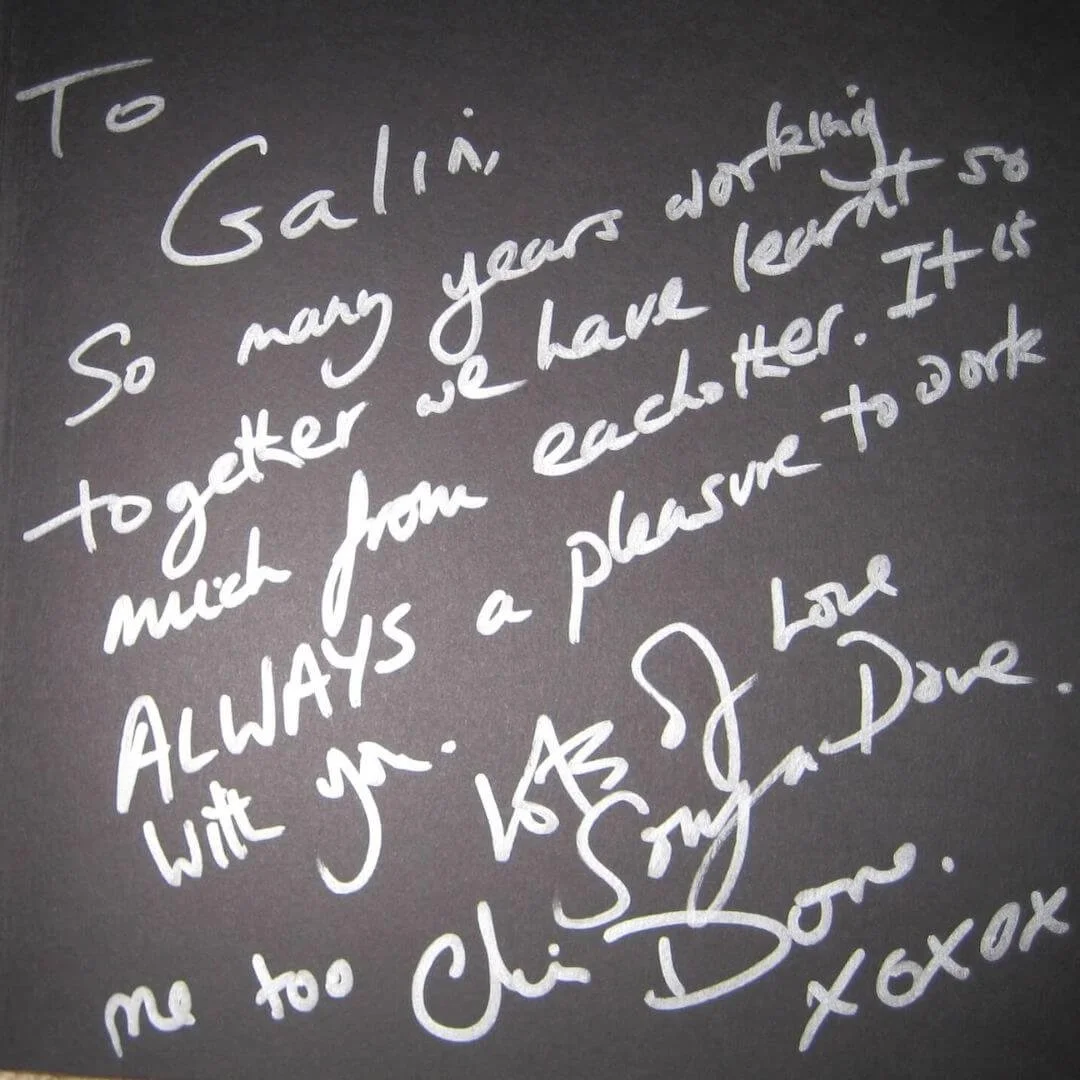 To
Galin,
So many years working
together we have learnt so
much from eachother. It is
ALWAYS a pleasure to work
with you. Lots of Love
Sonya Dove.
me too Chris Dove.
xoxox